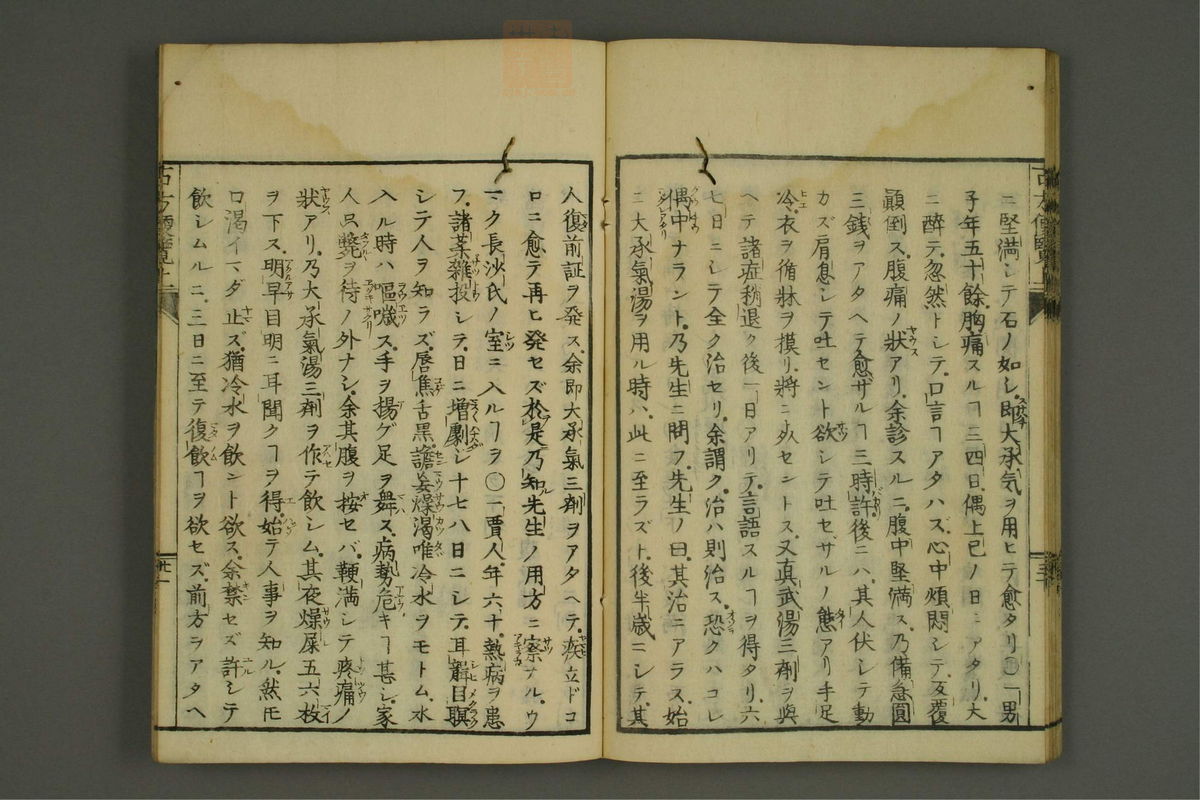 ニ堅満シテ石ノ如シ即大承気ヲ用ヒテ愈タリ〇一男
子年五十餘胸痛スルヿ三四日偶上巳ノ日ニアタリ大
ニ醉テ忽然トシテ口言ヿアタハズ心中煩悶シテ反覆
顚倒ス腹痛ノ狀アリ余診スルニ腹中堅満ス乃備急圓
三錢ヲアタヘテ愈ザルヿ三時許後ニハ其人伏シテ動
カズ肩息シテ吐セント欲シテ吐セザルノ態アリ手足
冷衣ヲ循牀ヲ摸リ將ニ死セントス又真武湯三劑ヲ與
ヘテ諸症稍退ク後一日アリテ言語スルヿヲ得タリ六
七日ニシテ全ク治セリ余謂ク治ハ則治ス恐クハコレ
偶中ナラント乃先生ニ問フ先生ノ曰其治ニアラス始
ニ大承氣湯ヲ用ル時ハ此ニ至ラズト後半歳ニシテ其
古方便覽上
三十
人復前証ヲ発ス余即大承氣三劑ヲアタヘテ疾立ドコ
ロニ愈テ再ヒ発セズ於是乃知先生ノ用方ニ察ナルヿ
マク長沙氏ノ室ニ入ルヿヲ〇一賈人年六十熱病ヲ患
フ諸藥雑投シテ日ニ增劇シ十七八日ニシテ耳聾目瞑
シテ人ヲ知ラズ唇焦舌黒譫妄燥渴唯冷水ヲモトム水
入ル時ハ嘔噦ス手ヲ揚グ足ヲ舞ス病勢危キヿ甚シ家
人只斃ヲ待ノ外ナシ余其腹ヲ按セバ鞕満シテ疼痛ノ
狀アリ乃大承氣湯三劑ヲ作テ飲シム其夜燥屎五六枚
ヲ下ス明早目明ニ耳聞クヿヲ得始テ人事ヲ知ル然モ
口渴イマダ止ズ猶冷水ヲ飲ント欲ス余禁セズ許シテ
飲シムルニ三日ニ至テ復飲ヿヲ欲セズ前方ヲアタヘ
古方便覽上
廿一